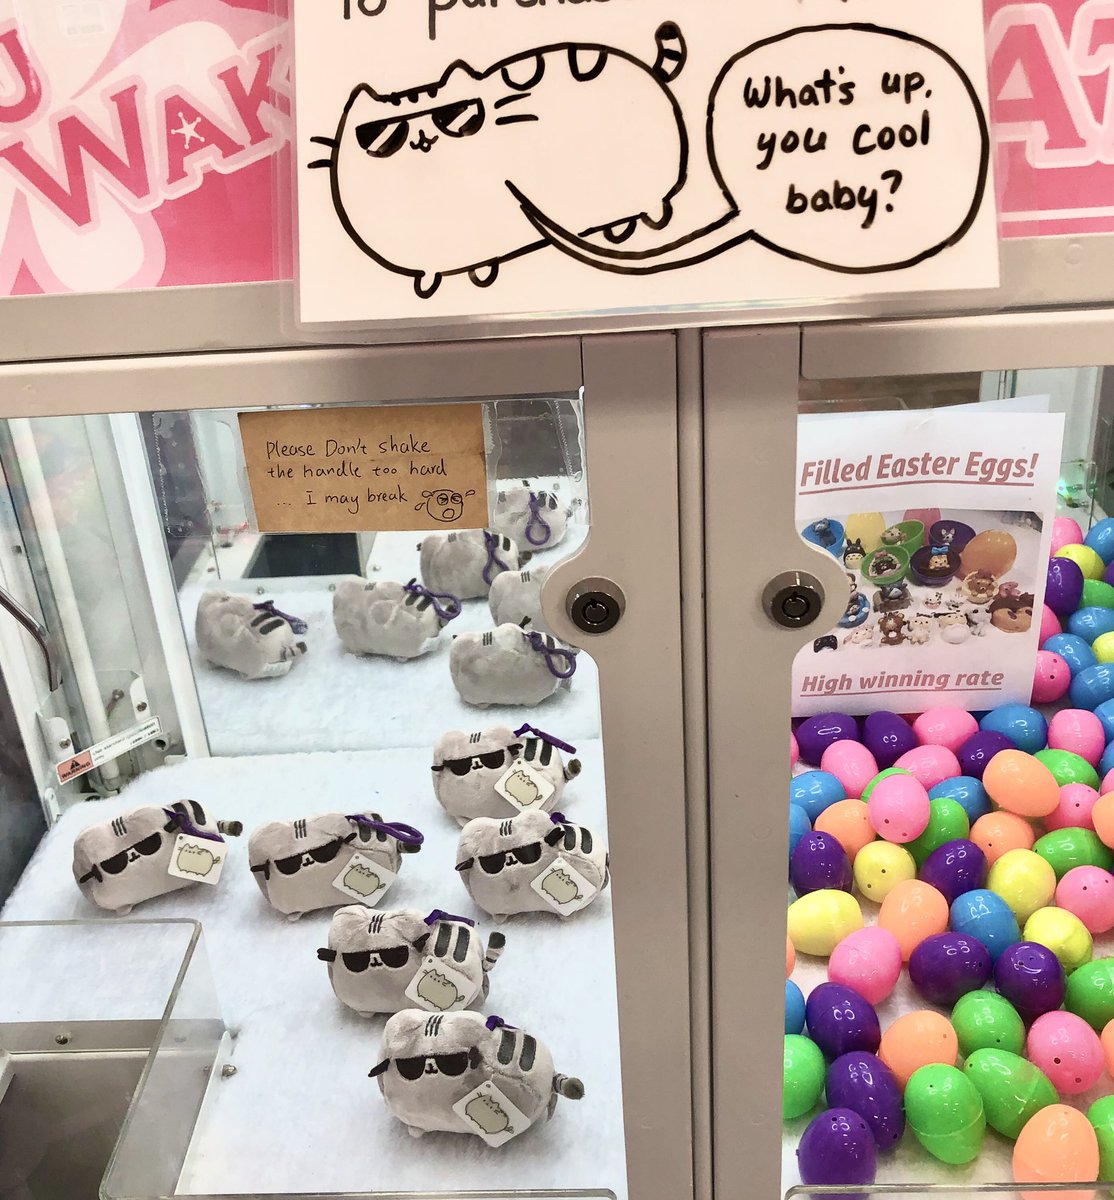 To
What's up,
you cool
baby?
WAK
Please Don't shake
the handle too hard
... I may break
Filled Easter Eggs!
High winning rate
WARNING